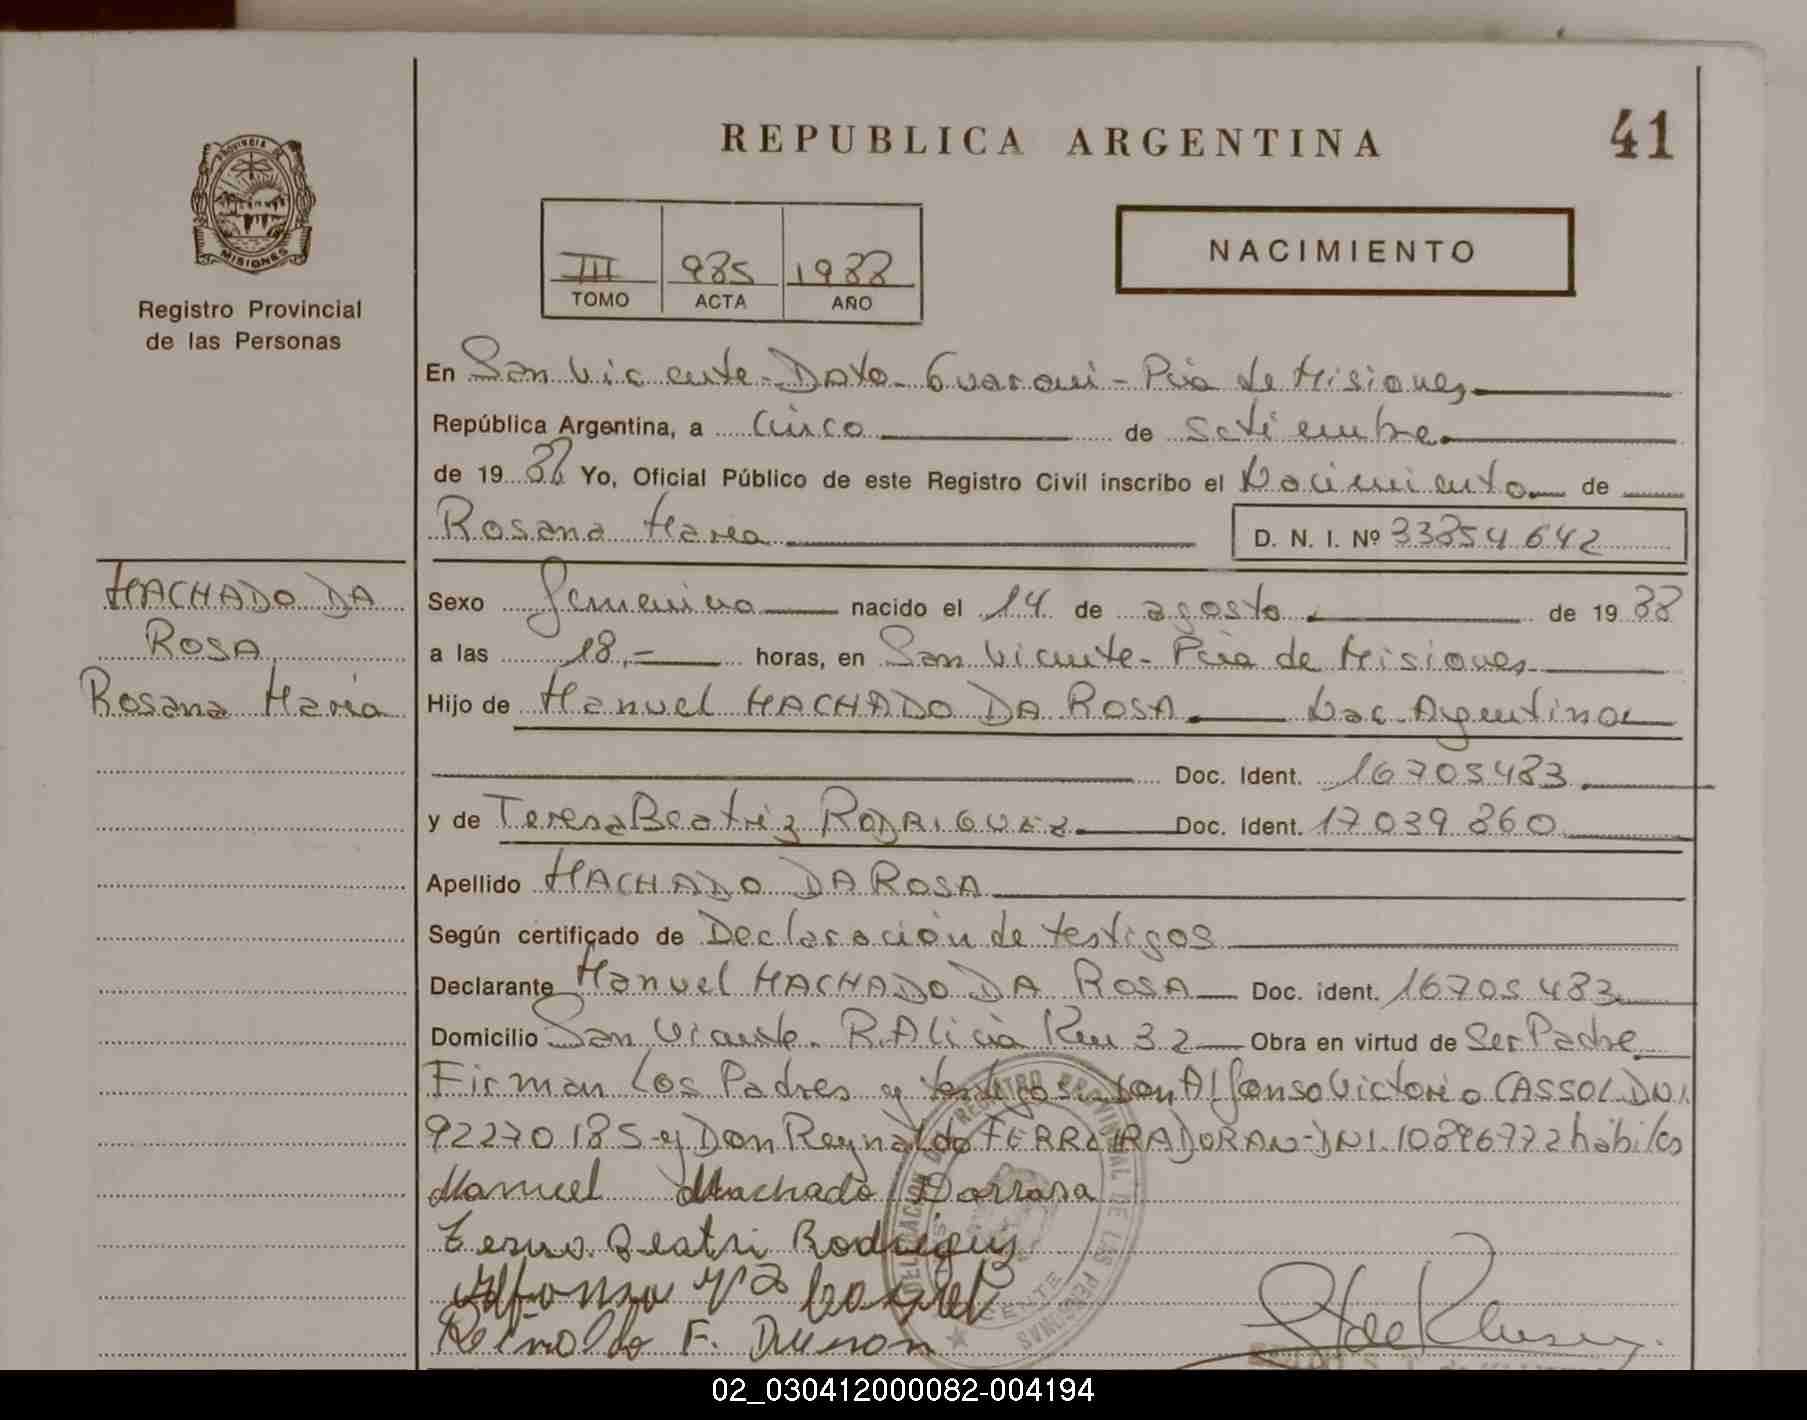 REPUBLICA ARGENTINA
41
PROVINCIA DE
MISIONES
Registro Provincial
de las Personas
III 985 1988
TOMO ACTA AÑO
NACIMIENTO
En San Vicente - Dpto - Guaraní - Pcia de Misiones
República Argentina, a Cinco de Setiembre
de 19 88 Yo, Oficial Público de este Registro Civil inscribo el Nacimiento de
Rosana Maria
D. N. I. Nº 33854642
MACHADO DA
ROSA
Rosana Maria
Sexo femenino nacido el 14 de agosto de 19 88
a las 18,- horas, en San Vicente - Pcia de Misiones
Hijo de Manuel MACHADO DA ROSA Nac. Argentina
Doc. Ident. 16705483
y de Teresa Beatriz RODRIGUEZ Doc. Ident. 17039860
Apellido MACHADO DA ROSA
Según certificado de Declaración de testigos
Declarante Manuel MACHADO DA ROSA Doc. ident. 16705483
Domicilio San Vicente. R. Alicia Km 32 Obra en virtud de Ser Padre
Firman Los Padres y testigos: Don Alfonso Victorio CASSOL DNI.
92270185 y Don Reynaldo FERREIRA DORAN - DNI. 10896772 hábiles
Manuel Machado Darrasa
Beatri Rodrigus
Alfonso
F.
REGISTRO PROVINCIAL DE LAS PERSONAS
02_030412000082-004194